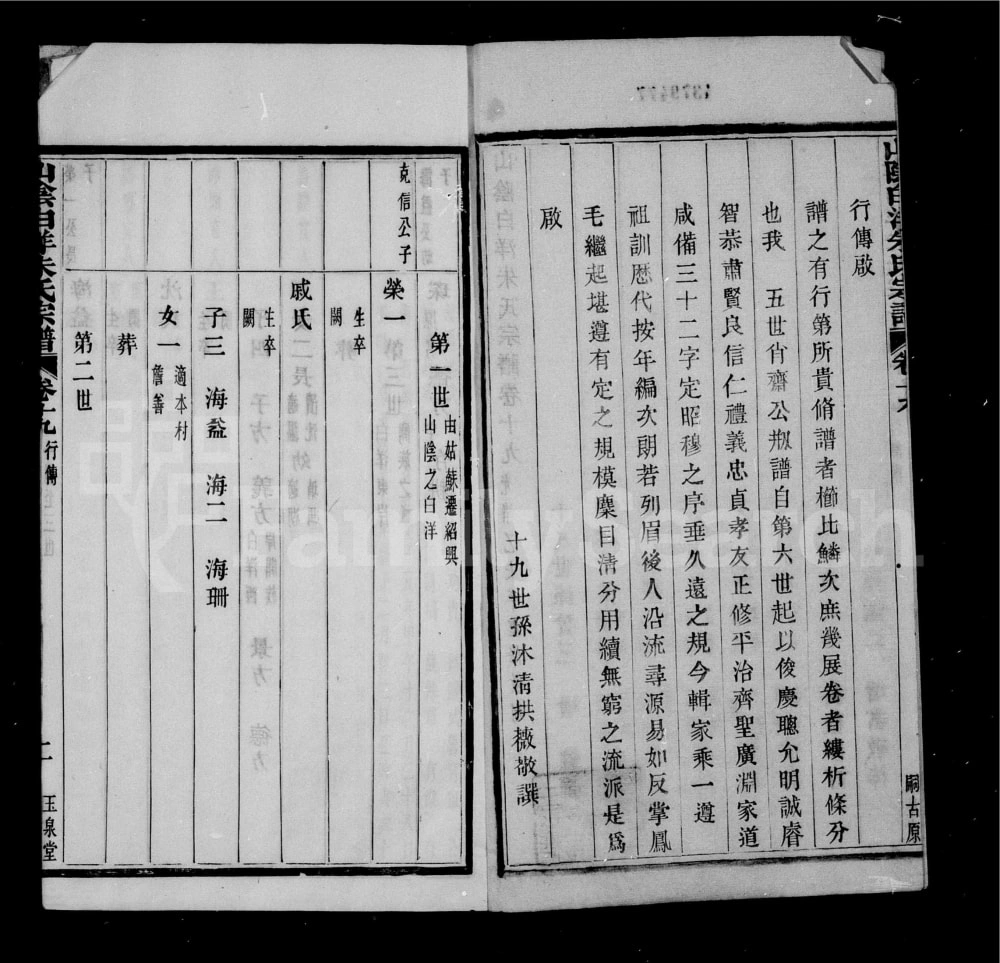 行傳啟
譜之有行第所貴脩譜者櫛比鱗次庶幾展卷者縷析條分
也我　五世省齋公刱譜自第六世起以俊慶聰允明誠睿
智恭肅賢良信仁禮義忠貞孝友正修平治齊聖廣淵家道
咸備三十二字定昭穆之序垂久遠之規今輯家乘一遵
祖訓歷代按年編次朗若列眉後人沿流尋源易如反掌鳳
毛繼起堪遵有定之規模麇目清分用續無窮之流派是為
啟
十九世孫沐清拱薇敬譔
嗣古原
克信公子
第一世
由姑蘇遷紹興
山陰之白洋
榮一
生卒
闕
戚氏
生卒
闕
子三　海益　海二　海珊
女一
適本村
詹善
葬
第二世
山陰白洋朱氏宗譜
卷十九
行傳
玉泉堂